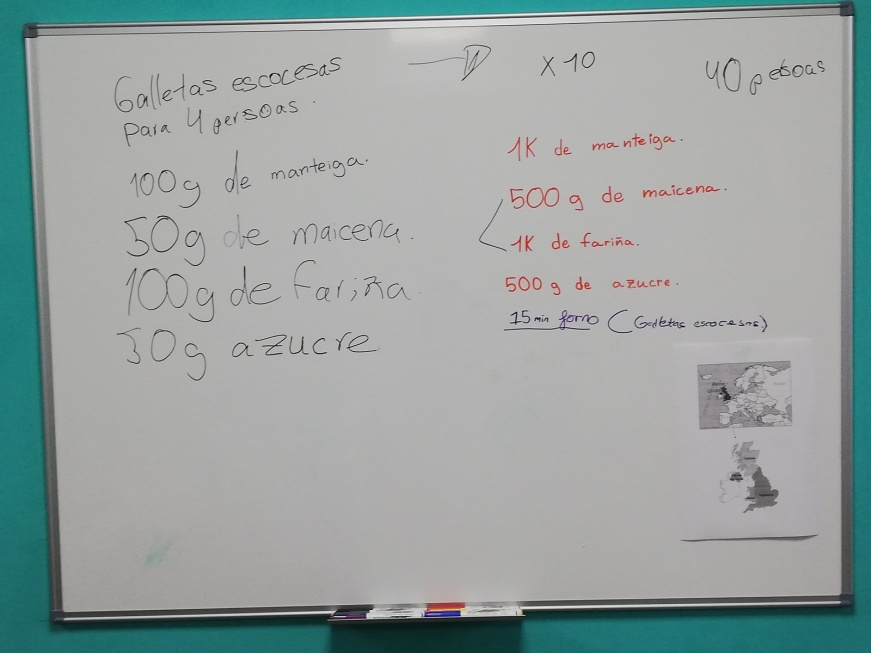 Galletas escocesas
para 4 persoas.
100g de manteiga.
50g de maicena.
100g de fariña
50g azucre
X 10
40 pesoas
1K de manteiga.
500 g de maicena.
1K de fariña.
500 g de azucre.
15 min forno (Galletas escocesas)